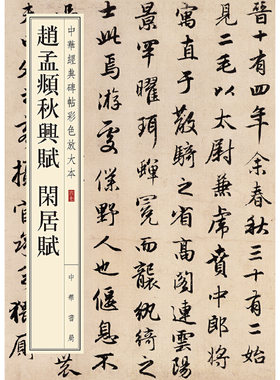 中華經典碑帖彩色放大本
趙孟頫秋興賦 閑居賦
中華書局
晉十有四年秋三十有二始
見二毛以太尉掾虎賁中郎將
寓直于散騎之省高閣連雲陽
景罕曜珥蟬冕而襲紈綺之
士此焉游處僕野人也偃
猥廁